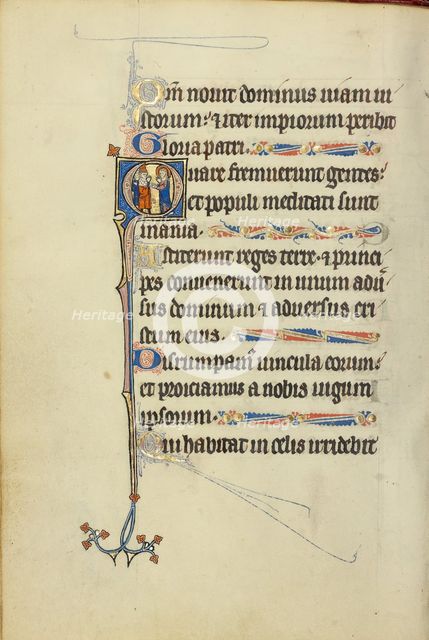 Qm̄ nouit dominus uiam iu
storum: et iter impiorum peribit
Gloria patri.
Quare fremuerunt gentes:
et populi meditati sunt
inania.
Astiterunt reges terre. et princi
pes conuenerunt in unum aduer
sus dominum et aduersus cri
stum eius.
Dirumpam̄ uincula eorum:
et proiciamus a nobis iugum
ipsorum.
Qui habitat in celis irridebit
Heritage
Heritage
Heritage
Heritage
Heritage